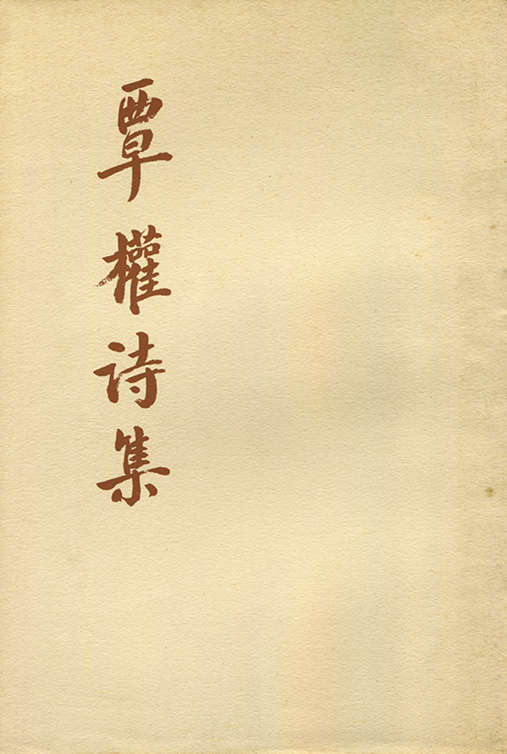 覃權诗集